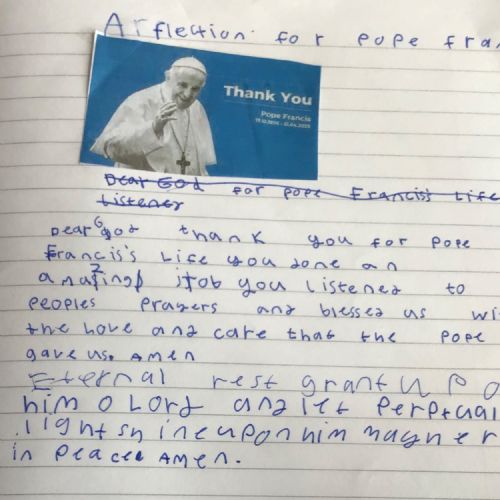 A rflection for pope fran
Thank You
Pope Francis
17.12.1936 - 21.04.2025
Dear God for pope Francis's Life
Listener
Dear God thank you for pope
Francis's Life you done an
amazing job you listened to
peoples prayers and blessed us wi
the Love and care that the pope
gave us. Amen
Eternal rest grant upo
him o Lord and let perpetual
light shine upon him may he r
in peace Amen.